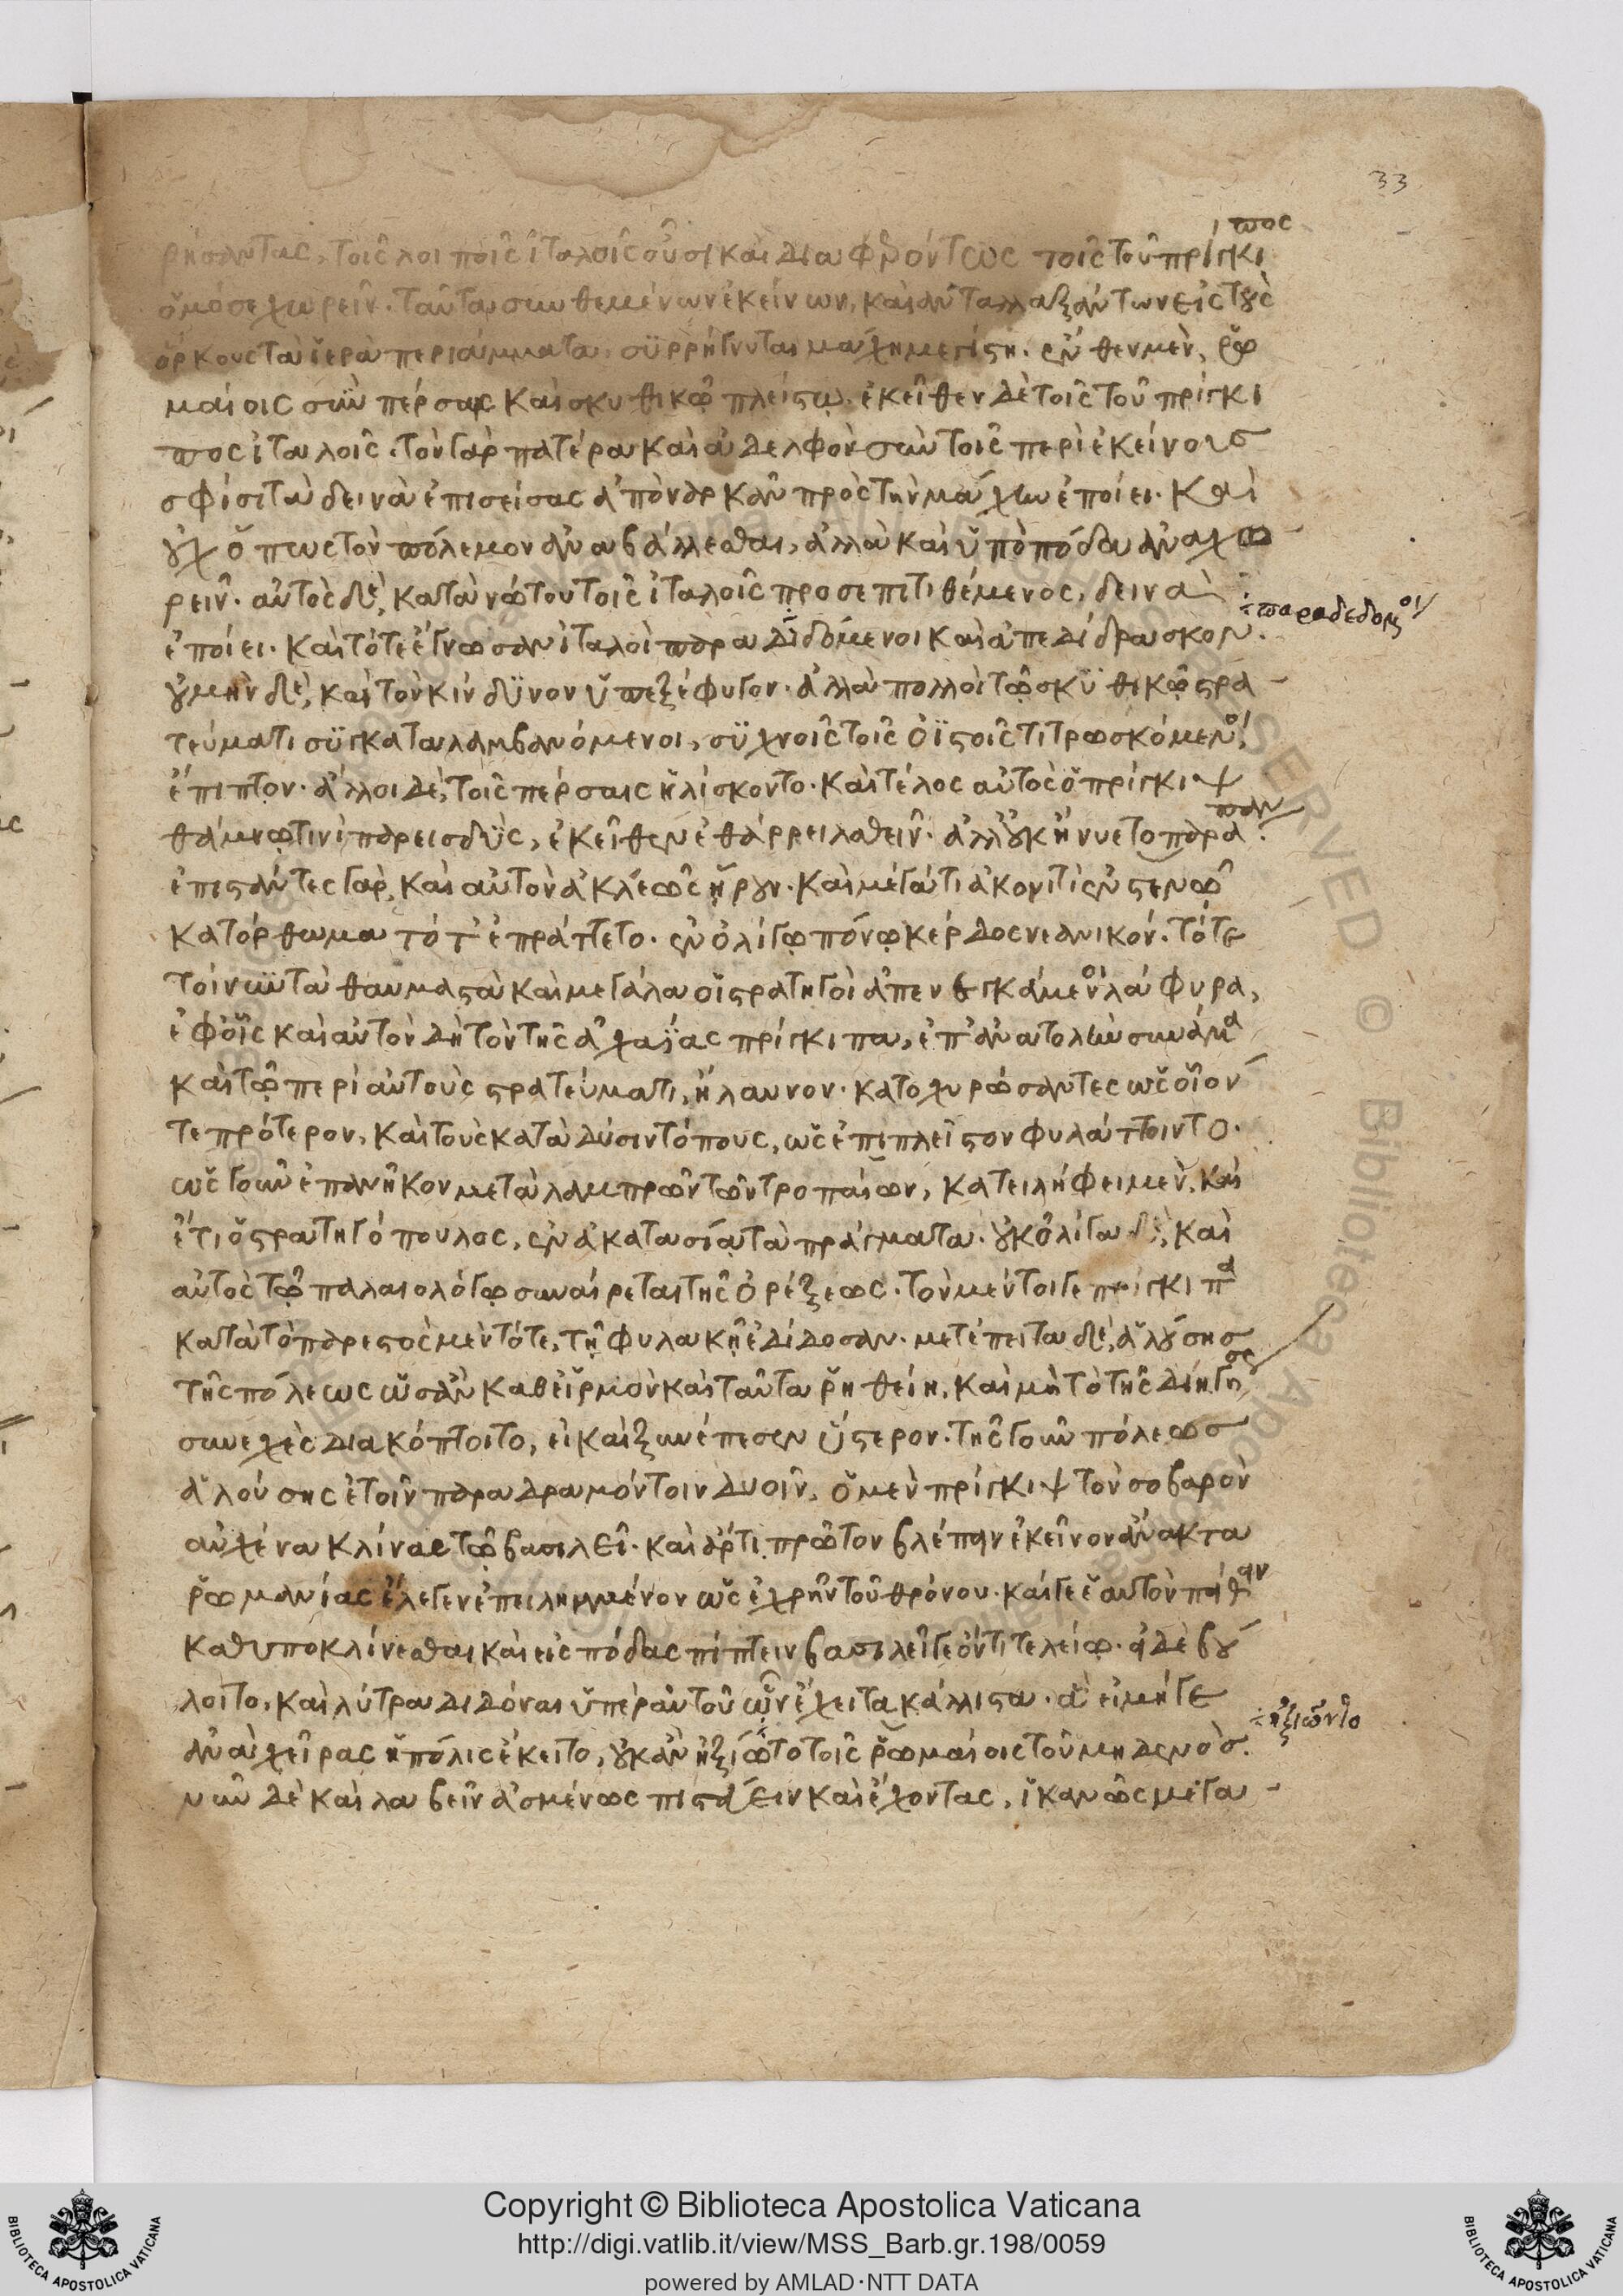 33
ρήσαντας, τοῖς λοιποῖς ἰταλοῖς οὖσι καὶ διαφερόντως τοῖς τοῦ πρίγκι
πος
ὁμόσε χωρεῖν. ταῦτα συνθεμένων ἐκείνων, καὶ ἀνταλλαξάντων εἰς τοὺς
ὅρκους τὰ ἱερὰ περιάμματα, συρρήγνυται μάχη μεγίστη. ἔνθεν μὲν, ῥω
μαίοις σὺν πέρσαις καὶ σκυθικῷ πλείστῳ. ἐκεῖθεν δὲ τοῖς τοῦ πρίγκι
πος ἰταλοῖς. τὸν γὰρ πατέρα καὶ ἀδελφὸν σὺν τοῖς περὶ ἐκείνους
σφίσι τὰ δεινὰ ἐπισείσας ἀπόναρκᾶν πρὸς τὴν μάχην ἐποίει. καὶ
οὐχ ὅπως τὸν πόλεμον ἀναβάλλεσθαι, ἀλλὰ καὶ ὑπὸ πόδα ἀναχω
ρεῖν. αὐτὸς δὲ, κατὰ νώτου τοῖς ἰταλοῖς προσεπιτιθέμενος, δεινὰ
÷ παραδεδομένοι
ἐποίει. καὶ τότε ἔγνωσαν ἰταλοὶ παραδιδόμενοι καὶ ἀπεδίδρασκον.
οὐ μὴν δὲ, καὶ τὸν κίνδυνον ὑπεξέφυγον. ἀλλὰ πολλοὶ τῷ σκυθικῷ στρα
τεύματι συγκαταλαμβανόμενοι, συχνοῖς τοῖς ὀϊστοῖς τιτρωσκόμενοι,
ἔπιπτον. ἄλλοι δὲ, τοῖς πέρσαις ἡλίσκοντο. καὶ τέλος αὐτὸς ὁ πρίγκιψ
θάμνῳ τινὶ παρεισδὺς, ἐκεῖθεν ἐθάρρει λαθεῖν. ἀλλ' οὐκ ἤνυε τὸ παράπαν.
ἐπιστάντες γὰρ, καὶ αὐτὸν ἀκλεῶς ᾕρουν. καὶ μέγα τι ἀκονιτὶ ἐν στενῷ
κατόρθωμα τότ' ἐπράττετο. ἐν ὀλίγῳ πόνῳ κέρδος νεανικόν. τότε
τοίνυν τὰ θαυμαστὰ καὶ μεγάλα οἱ στρατηγοὶ ἀπενεγκάμενοι λάφυρα,
ἐφ' οἷς καὶ αὐτὸν δὴ τὸν τῆς ἀχαΐας πρίγκιπα, ἐπ' ἀνατολὴν συνάμα
καὶ τῷ περὶ αὐτοὺς στρατεύματι, ἤλαυνον. κατοχυρώσαντες ὡς οἷον
τε πρότερον, καὶ τοὺς κατὰ δύσιν τόπους, ὡς ἐπιπλεῖστον φυλάττοιντο.
ὡς γοῦν ἐπανῆκον μετὰ λαμπρῶν τῶν τροπαίων, κατειλήφει μὲν, καὶ
ἔτι ὁ στρατηγόπουλος, ἐν ἀκατασίᾳ τὰ πράγματα. οὐκ ὀλίγα δὲ, καὶ
αὐτὸς τῷ παλαιολόγῳ συναίρεται τῆς ὀρέξεως. τὸν μέντοι γε πρίγκιπα
κατὰ τὸ παρεστὸς μὲν τότε, τῇ φυλακῇ ἐδίδοσαν. μετέπειτα δὲ, ἁλούσης
τῆς πόλεως ὡς ἂν καθ' εἱρμὸν καὶ ταῦτα ῥηθείη, καὶ μὴ τὸ τῆς διηγήσεως
συνεχὲς διακόπτοιτο, εἰ καὶ ξυνέπεσεν ὕστερον. τῆς γοῦν πόλεως
ἁλούσης ἐτοῖν παραδραμόντοιν δυοῖν, ὁ μὲν πρίγκιψ τὸν σοβαρὸν
αὐχένα κλίνας τῷ βασιλεῖ. καὶ ἄρτι πρῶτον βλέπειν ἐκεῖνον ἄνακτα
ῥωμανίας ἔλεγεν ἐπειλημμένον ὡς ἐχρῆν τοῦ θρόνου. καί γε ἑαυτὸν πείθειν
καθυποκλίνεσθαι καὶ εἰς πόδας πίπτειν βασιλεῖ γε ὄντι τελείῳ. εἰ δὲ βού
λοιτο, καὶ λύτρα διδόναι ὑπὲρ αὐτοῦ ὧν ἔχει τὰ κάλλιστα. ἃ εἰ μήγε
÷ ἠξιῶντο
ἀνὰ χεῖρας ἡ πόλις ἔκειτο, οὐκ ἂν ἠξιῶτο τοῖς ῥωμαίοις τοῦ μηδενός.
νῦν δὲ καὶ λαβεῖν ἀσμένως πιστεύειν καὶ ἔχοντας, ἱκανῶς μετα
Copyright © Biblioteca Apostolica Vaticana
http://digi.vatlib.it/view/MSS_Barb.gr.198/0059
powered by AMLAD·NTT DATA